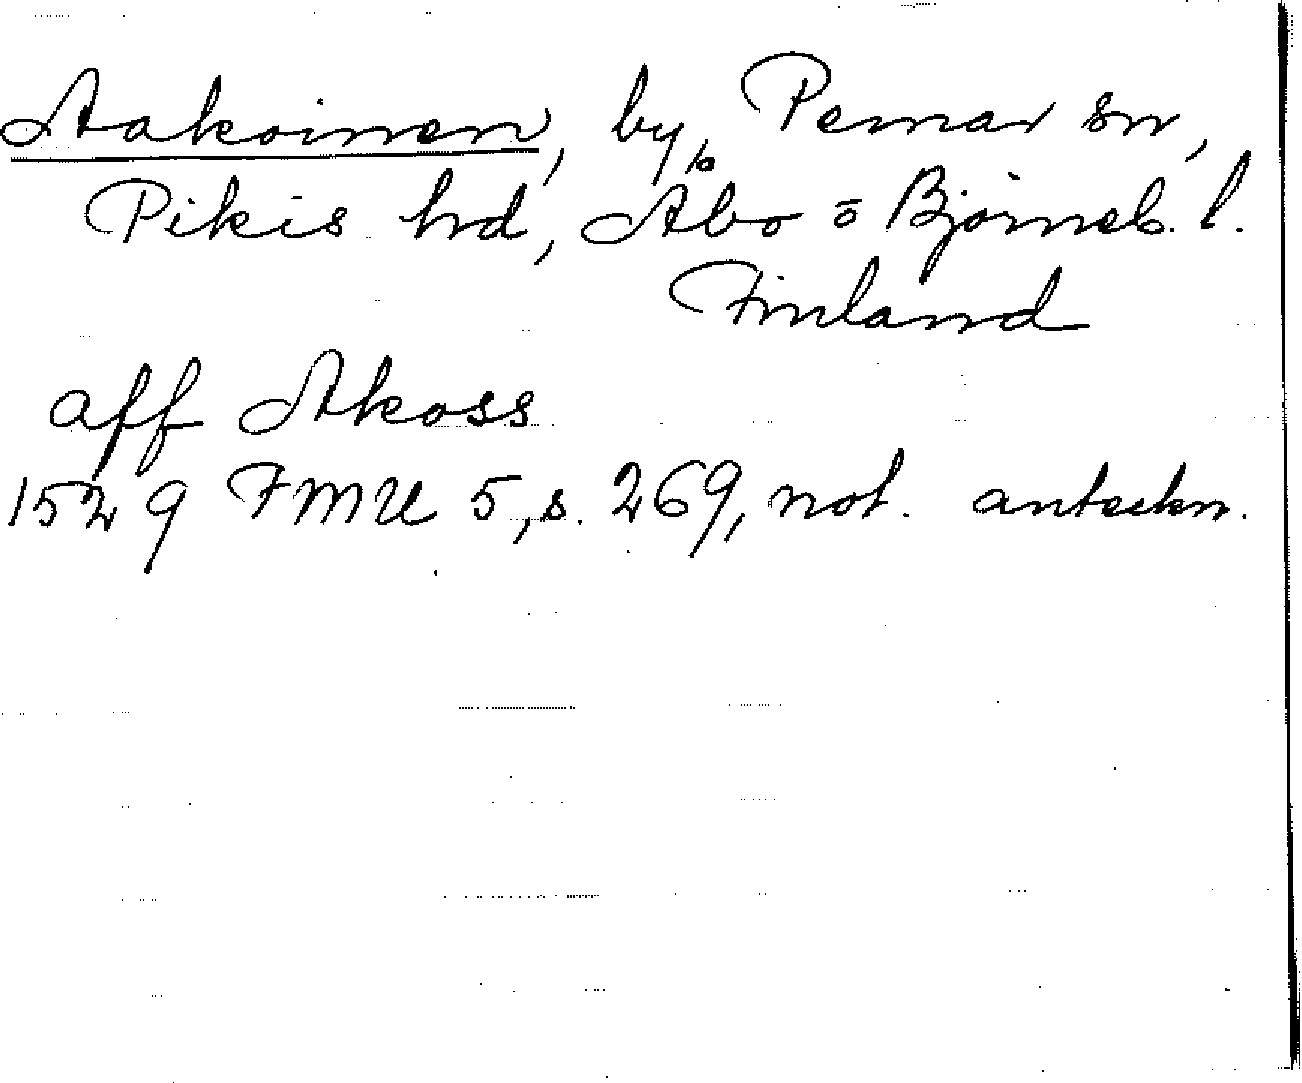 Aakoinen, by, Pemar sn,
Pikis hd, Åbo o Björneb. l.
Finland
aff Akoss
1529 FMU 5, s. 269, not. anteckn.